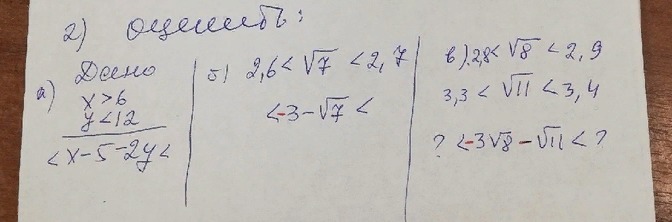 2) оценить:
а) Дано
x > 6
y < 12
< x - 5 - 2y <
б) 2,6 < √7 < 2,7
< -3 - √7 <
в) 2,8 < √8 < 2,9
3,3 < √11 < 3,4
? < -3√8 - √11 < ?